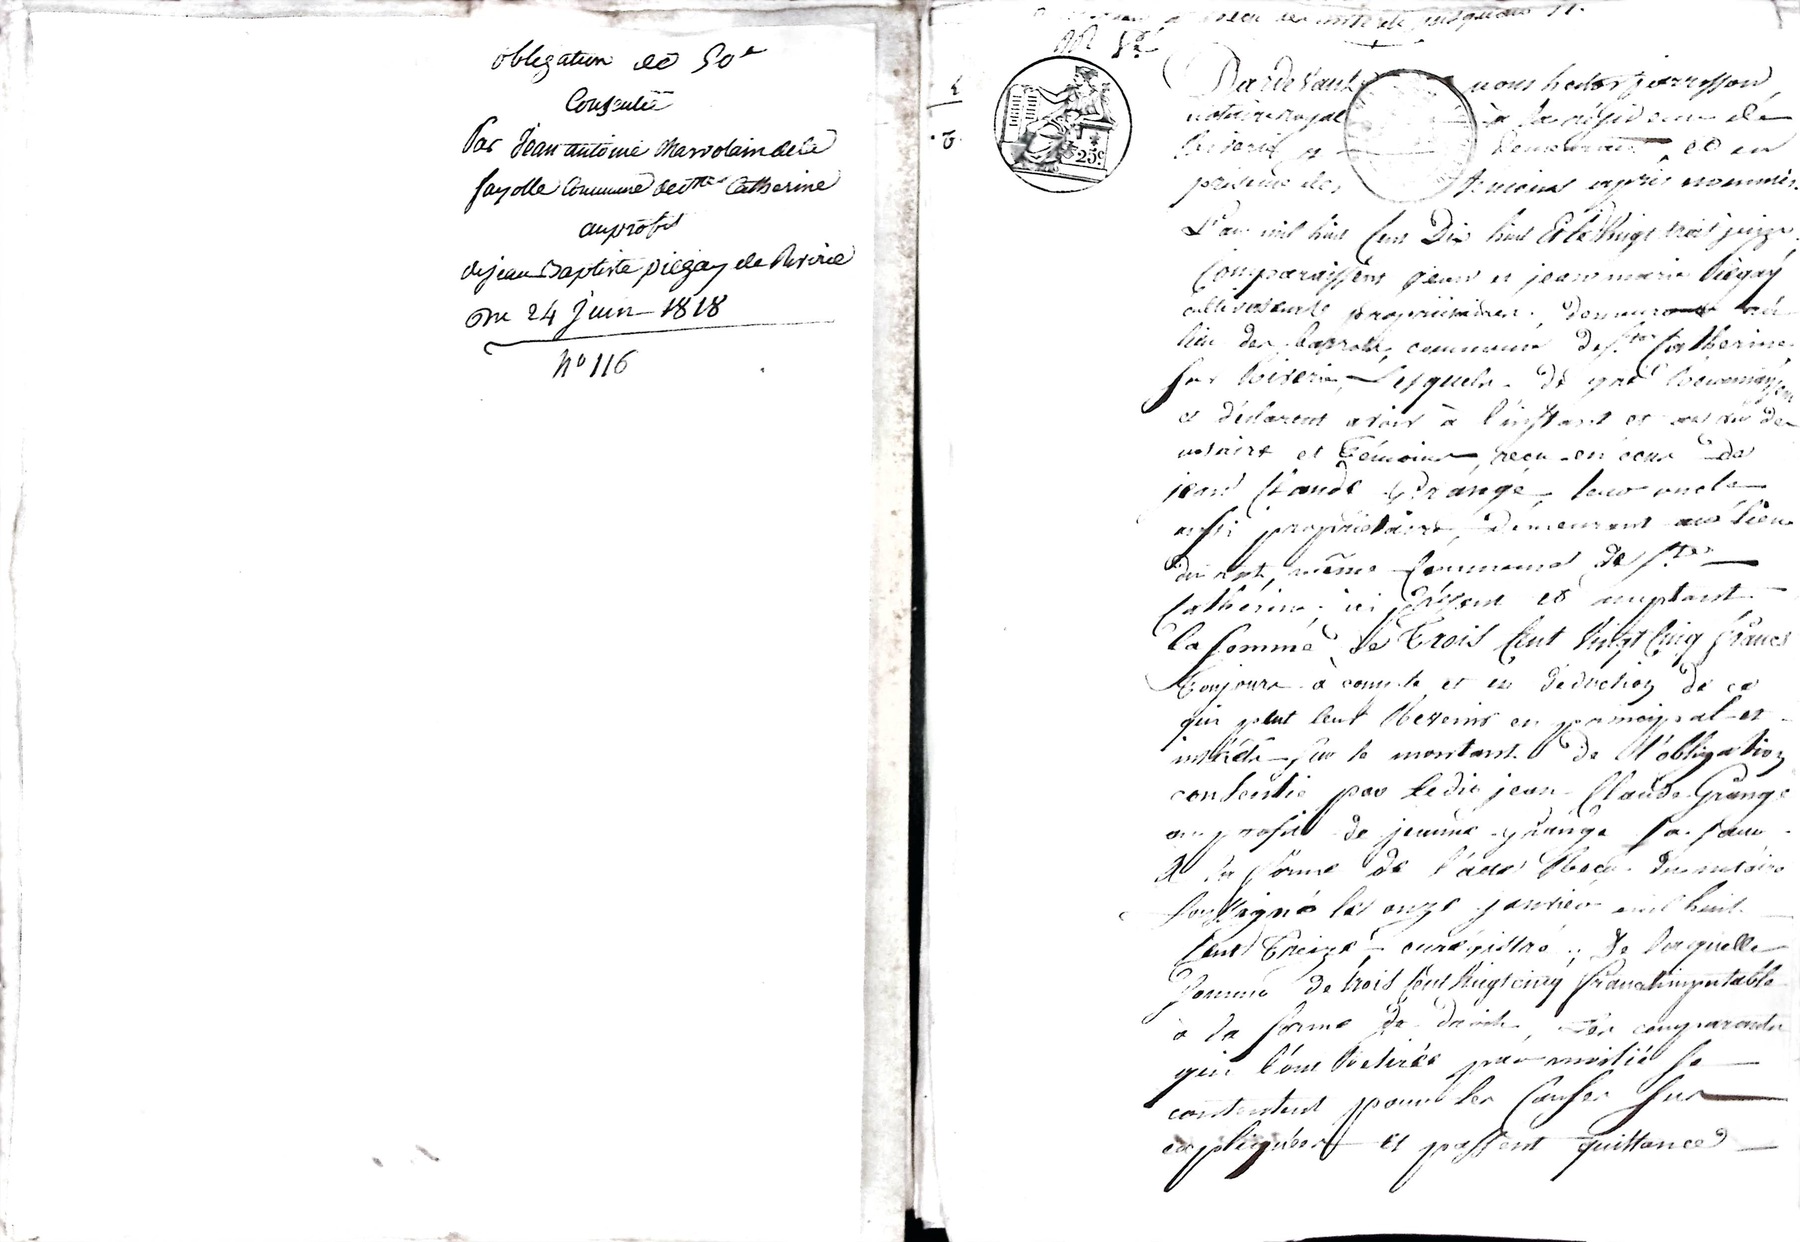 obligation de 50f
Consentie
Par Jean antoine charvolain de la
fayolle Commune de Ste Catherine
au profit
de jean Baptiste pilgay de Riverie
Du 24 Juin 1818
No 116
25c
Par devant nous
notaire royal à la résidence de
Riverie y demeurant et en
présence des témoins après nommés
L'an mil huit Cent Dix huit et le vingt trois juin
Comparaissent jean et jean marie
cultivateurs propriétaires, demeurant au
lieu des commune de Ste Catherine
sur Riverie, Lesquels de gré
et déclarent avoir à l'instant et au vu des
notaire et Témoins, reçu en écus de
jean Claude Grange leur oncle
aussi propriétaire, demeurant au lieu
même Commune de Ste
Catherine ici présent et acceptant
la somme de Trois Cent vingt Cinq francs
Toujours à compte et en déduction de ce
qui peut leur Revenir en principal et
intérêts sur le montant de l'obligation
consentie par Ledit jean Claude Grange
au profit de jeanne Grange sa sœur
à la forme de l'acte Reçu du notaire
soussigné les onze janvier mil huit
Cent Treize, enregistré, de laquelle
somme de trois Cent vingt cinq francs imputable
à la forme de droit, les comparants
qui l'ont Retirée par moitié se
contentent pour les Causes sus
expliquées et passent quittance